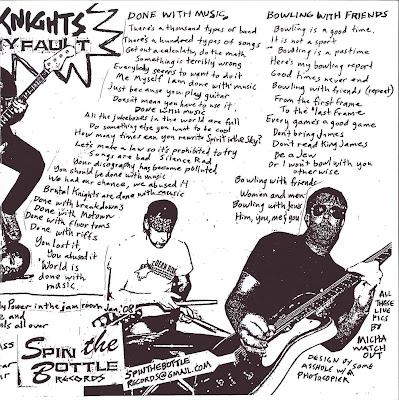 KNIGHTS
Y FAULT
DONE WITH MUSIC
There's a thousand types of band
There's a hundred types of songs
Get out a calculator, do the math
Something is terribly wrong
Everybody seems to want to do it
Me Myself I am done with music
Just because you play guitar
Doesn't mean you have to use it
DONE WITH MUSIC
All the jukeboxes in the world are full
Do something else you want to be cool
How many times can you rewrite Spirit in the Sky?
Let's make a law so it's prohibited to try
Songs are bad Silence Rad
Your discography has become polluted
You should be done with music
We had our chance, we abused it
Brutal Knights are done with music
Done with breakdowns
Done with Motown
Done with floor toms
Done with riffs
You lost it,
You abused it
World is
done with
music.
BOWLING WITH FRIENDS
Bowling is a good time.
It is not a sport
Bowling is a pastime
Here's my bowling report
Good times never end
Bowling with friends (repeat)
From the first frame
To the last frame
Every game's a good game
Don't bring James
Don't read King James
Be a Jew
Or I won't bowl with you
otherwise
Bowling with friends
Women and men
Bowling with Jews
Him, you, me & you
Power in the jam room Jan. '08
and
all over
SPIN the
BOTTLE
RECORDS
SPINTHEBOTTLE
RECORDS@GMAIL.COM
ALL
THESE
LIVE
PICS
BY
MICHA
WATCH
OUT
DESIGN BY SOME
ASSHOLE W/A
PHOTOCOPIER